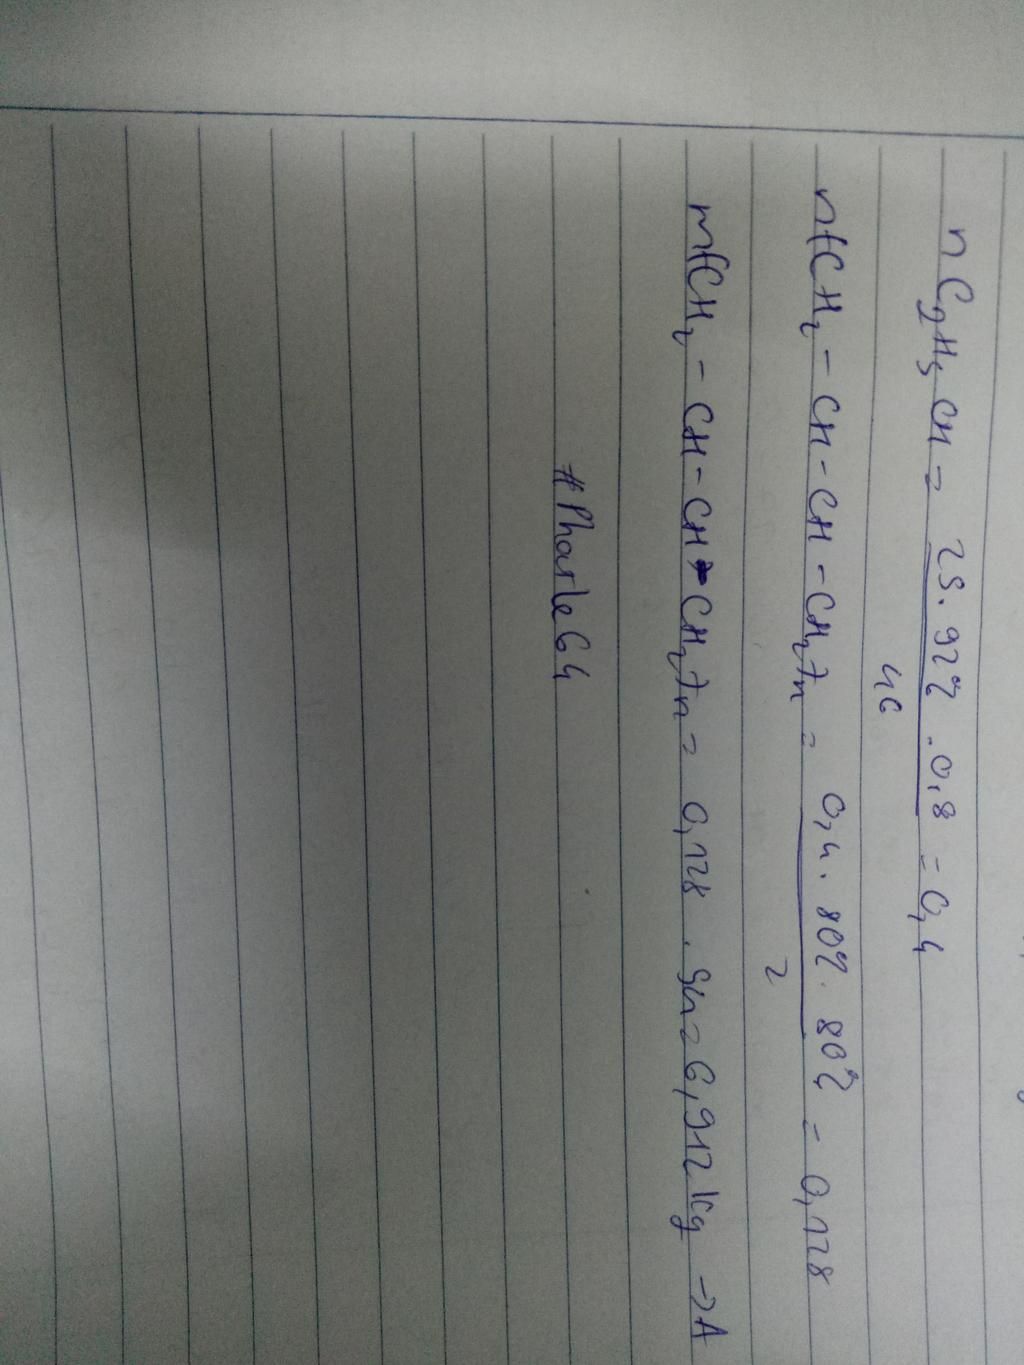 n C₂H₅OH = 25.92% .0,8 = 0,4
46
n(CH₂ - CH - CH - CH₂)n = 0,4. 80%. 80% = 0,128
2
m(CH₂ - CH - CH - CH₂)n = 0,128 . 54 = 6,912 kg → A
#Pharle64